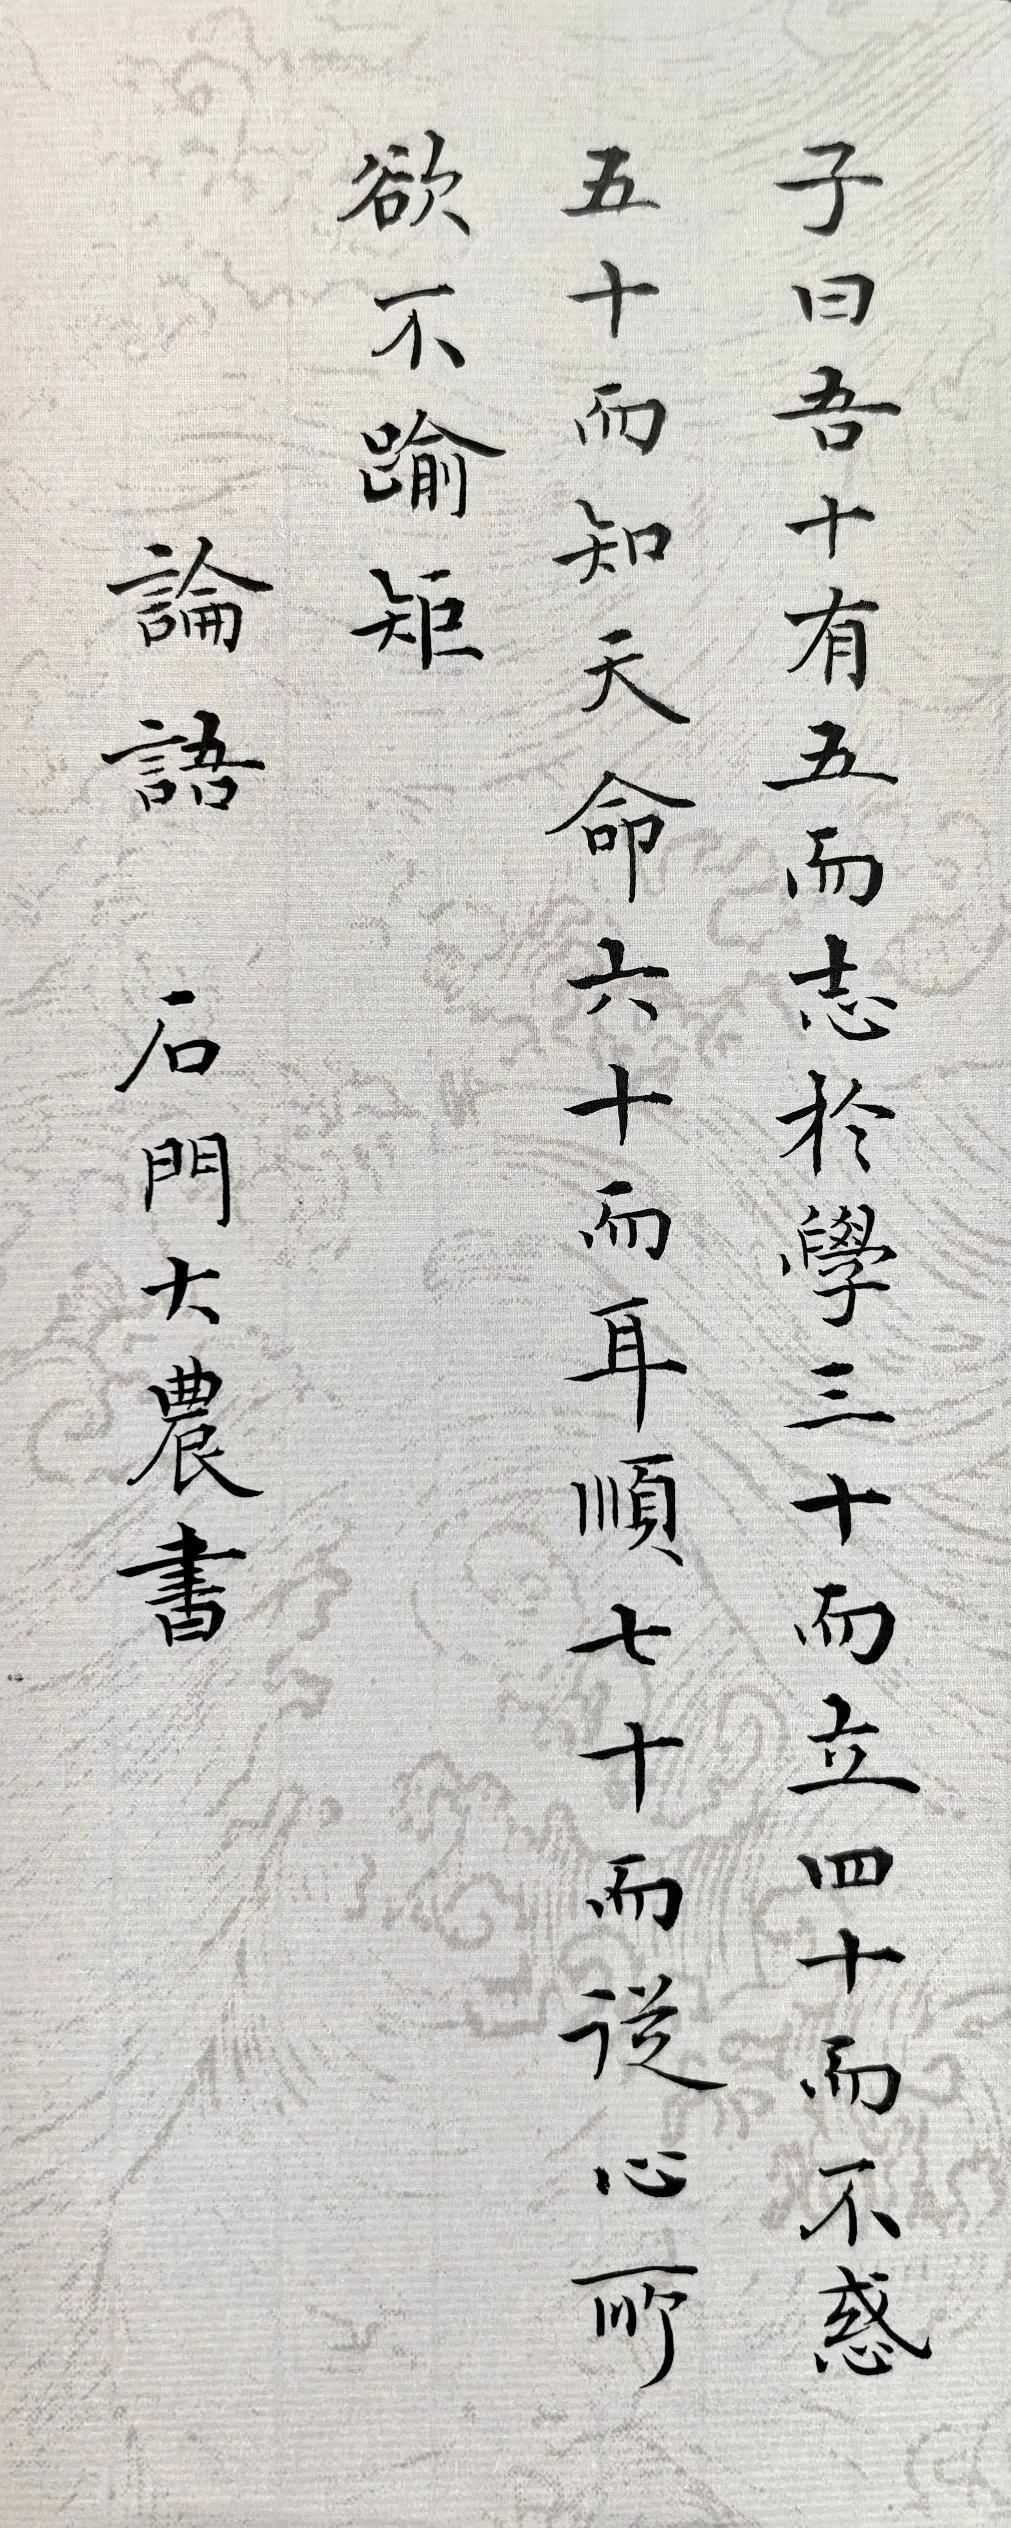 子曰吾十有五而志於學三十而立四十而不惑
五十而知天命六十而耳順七十而從心所
欲不踰矩
論語 石門大農書